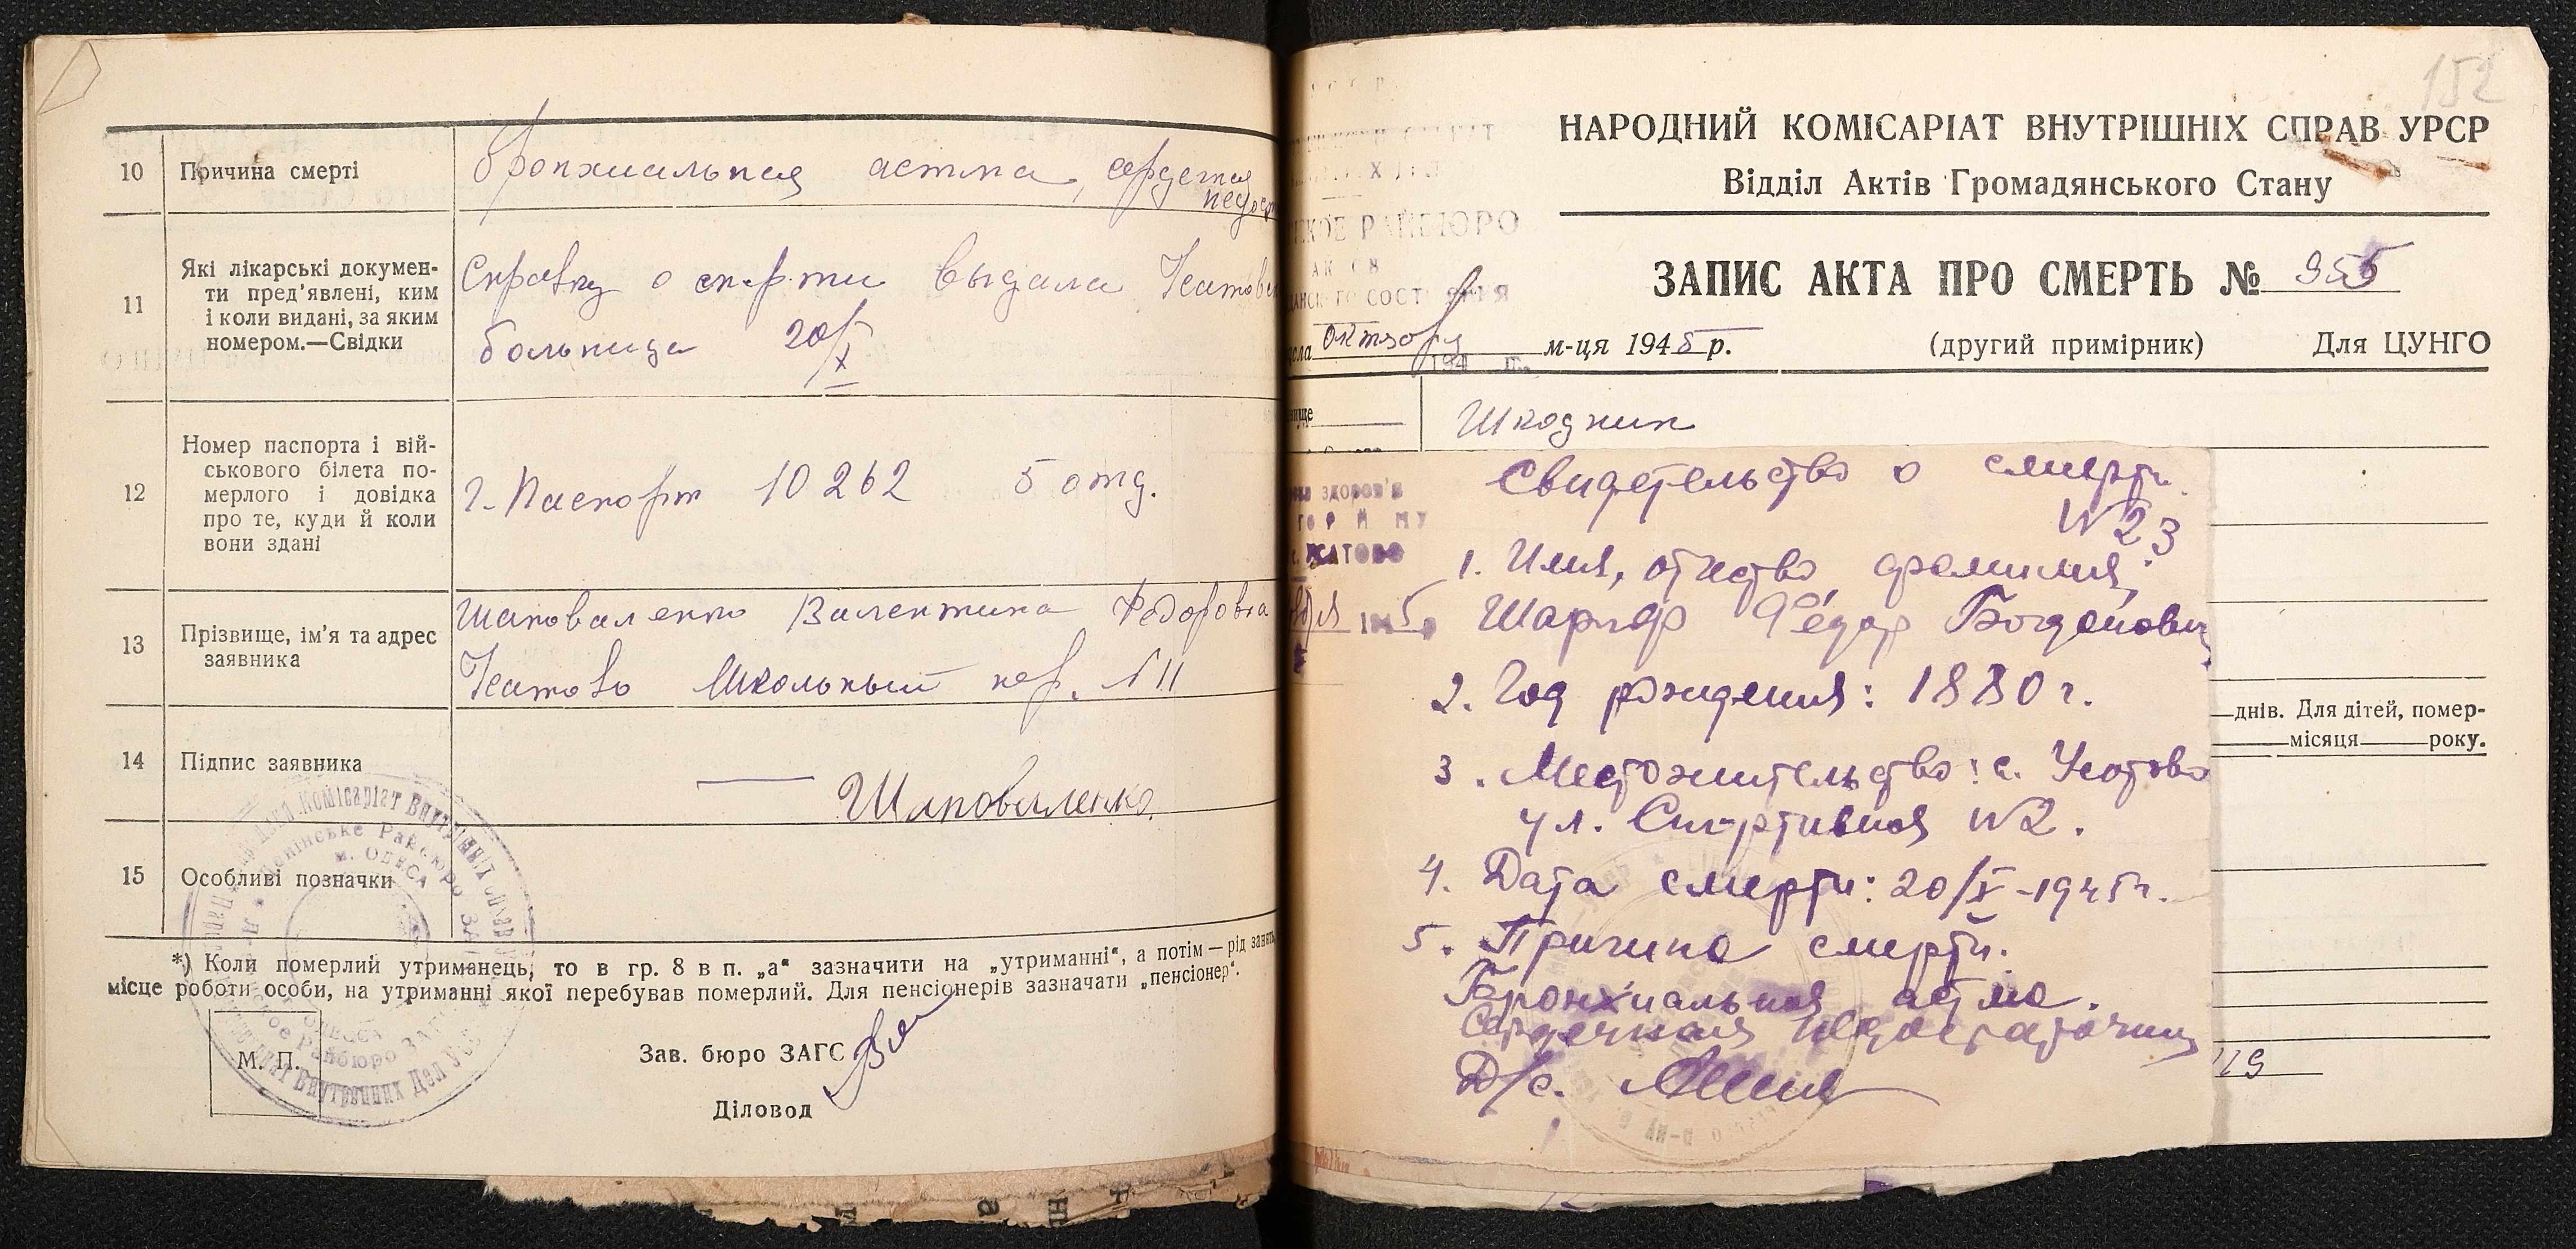 10 Причина смерти Бронхиальная астма, сердечная
недост
11 Які лікарські докумен-
ти пред'явлені, ким
і коли видані, за яким
номером.—Свідки
Справку о смерти выдала Усатовск
больница 20/X
12 Номер паспорта і вій-
ськового білета по-
мерлого і довідка
про те, куди й коли
вони здані
Паспорт 10262 5 отд.
13 Прізвище, ім'я та адрес
заявника
Шаповаленко Валентина Федоровна
Усатово Школьный пер. №11
14 Підпис заявника
Шаповаленко
15 Особливі позначки
*) Коли померлий утриманець, то в гр. 8 в п. „а“ зазначити на „утриманні“, а потім — рід занять
місце роботи особи, на утриманні якої перебував померлий. Для пенсіонерів зазначати „пенсіонер“.
М. П.
Зав. бюро ЗАГС
Діловод
152
НАРОДНИЙ КОМІСАРІАТ ВНУТРІШНІХ СПРАВ УРСР
Відділ Актів Громадянського Стану
РАЙБЮРО
ЗАПИС АКТА ПРО СМЕРТЬ № 955
октября м-ця 1945 р. (другий примірник) Для ЦУНГО
Шкодник
Свидетельство о смерти.
N 23
УСАТОВО
1. Имя, отчество фамилия:
Шарф Фёдор Богданович
2. Год рождения: 1880 г.
3. Местожительство: с. Усатово
ул. Спортивная N2.
4. Дата смерти: 20/X-1945 г.
5. Причина смерти.
Бронхиальная астма.
Сердечная недостаточн
днів. Для дітей, помер-
місяця року.